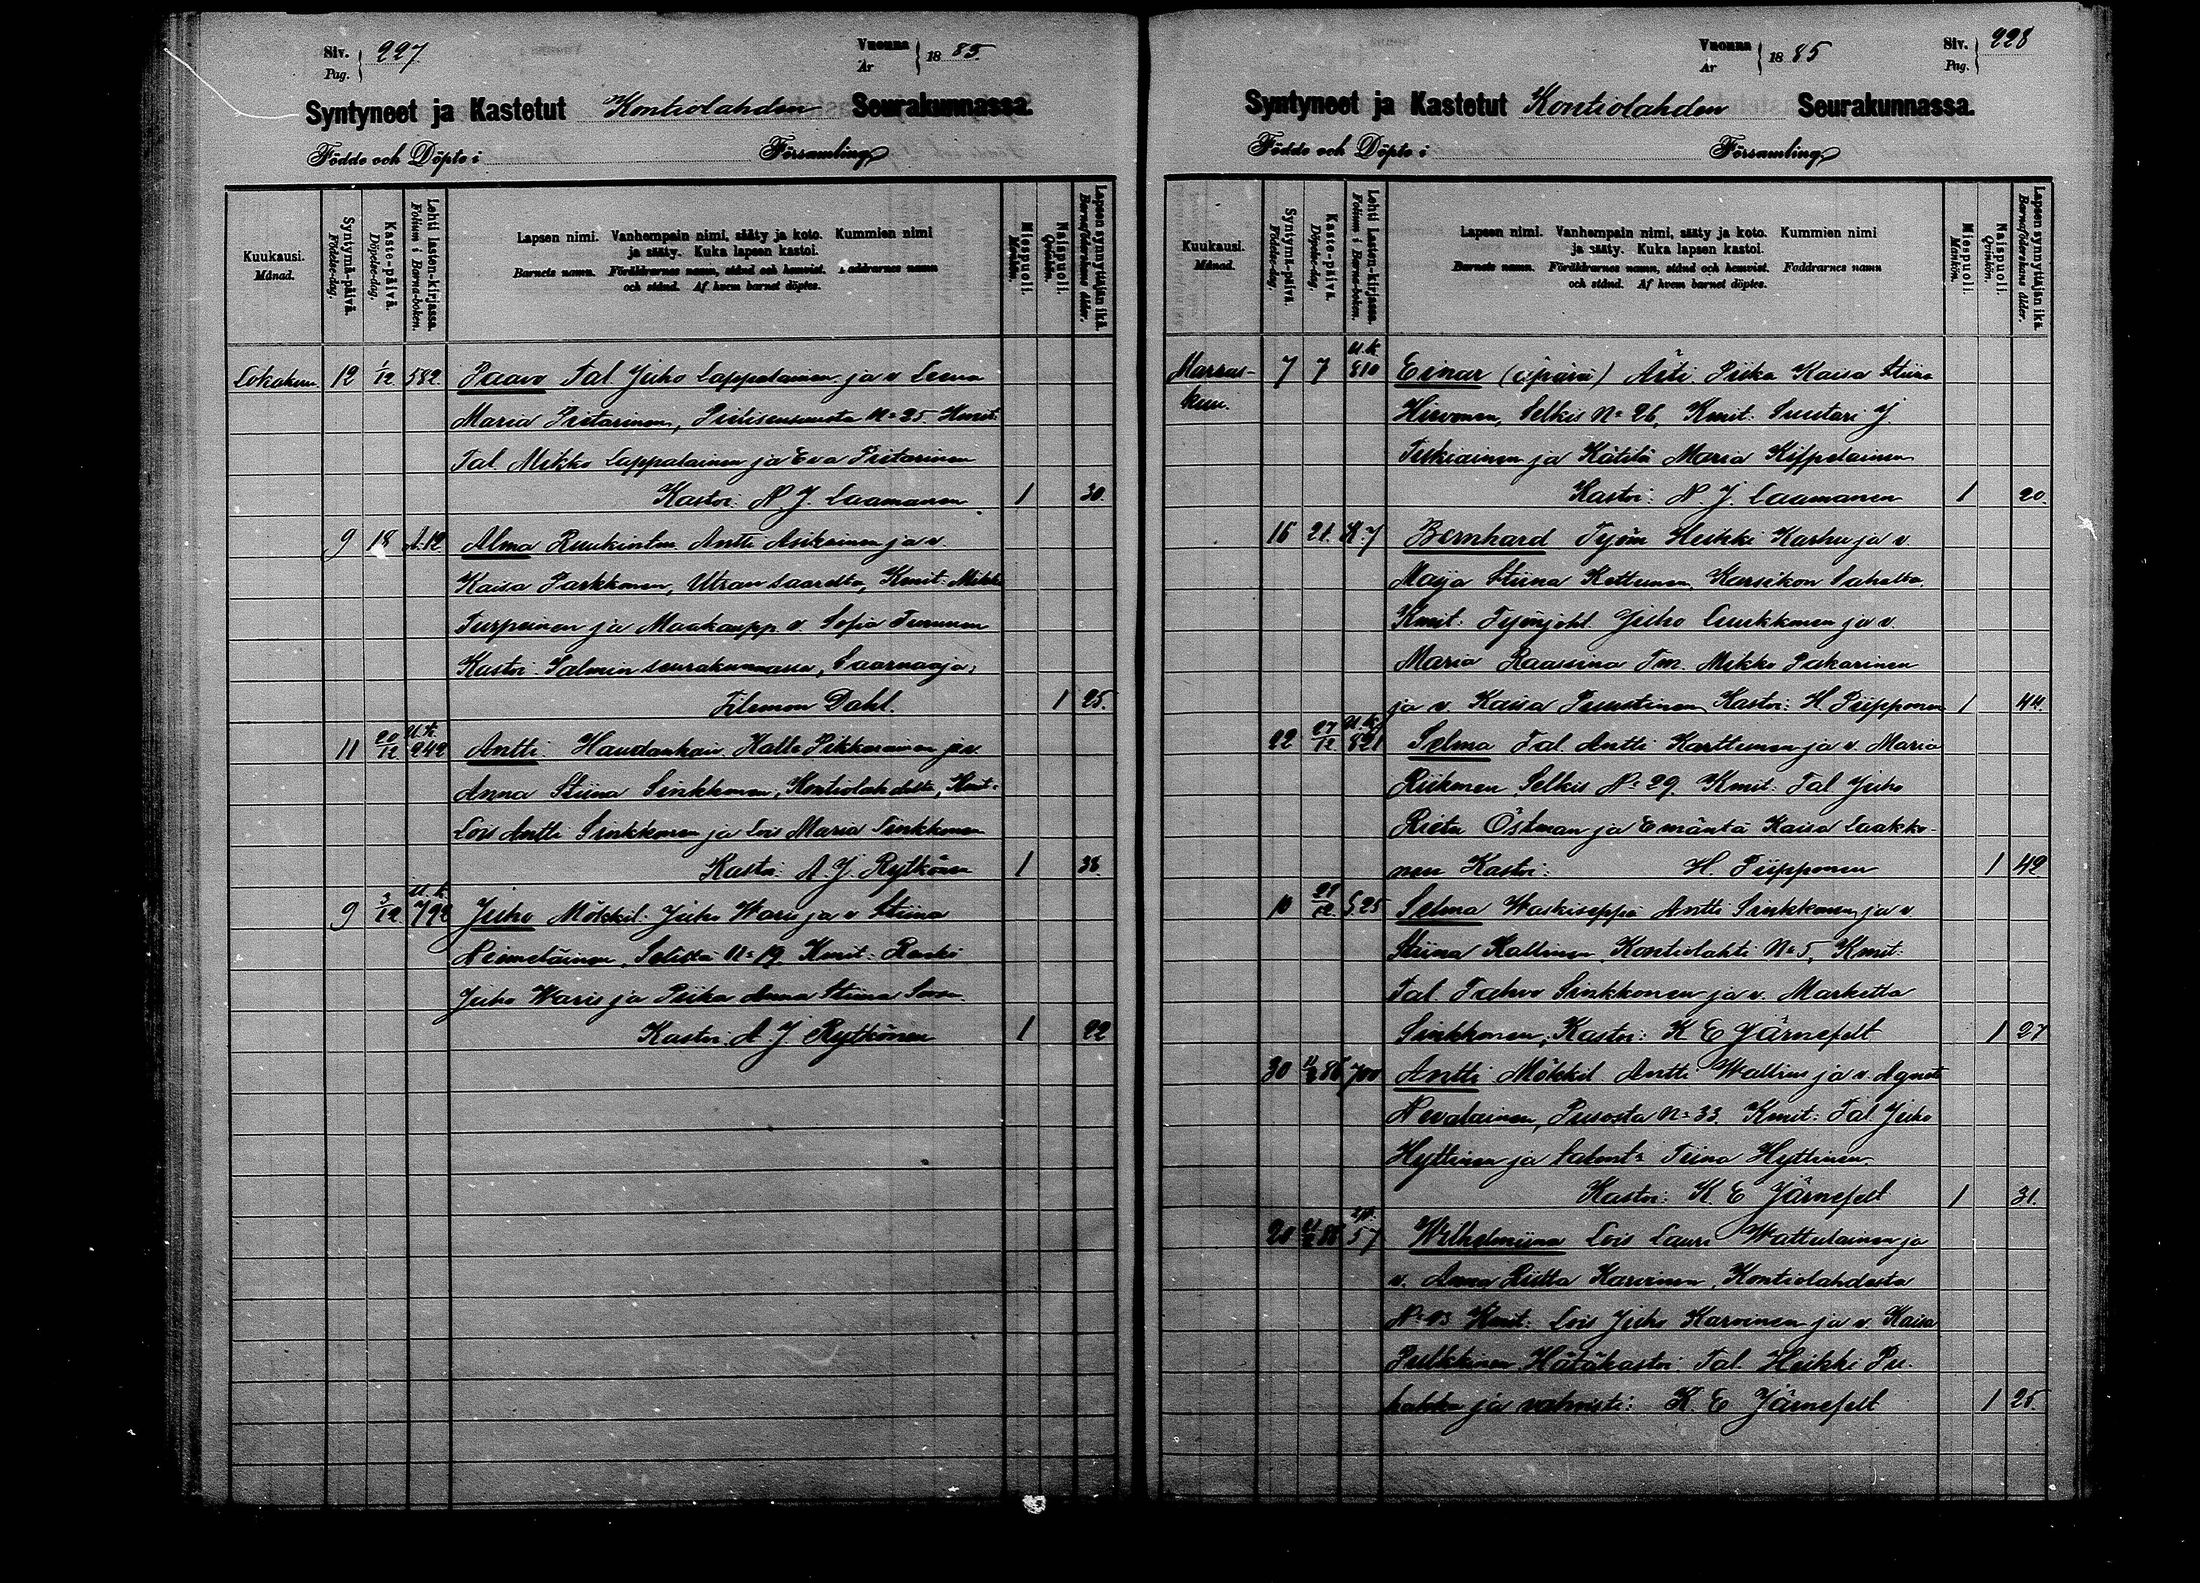 Siv. Pag. 227
Vuonna År 1885.
Syntyneet ja Kastetut Kontiolahden Seurakunnassa.
Födde och Döpte i Församling
Kuukausi. Månad.
Syntymä-päivä. Födelse-dag.
Kaste-päivä. Döpelse-dag.
Lehti lasten-kirjassa. Folium i Barna-boken.
Lapsen nimi. Vanhempain nimi, sääty ja koto. Kummien nimi
ja sääty. Kuka lapsen kastoi.
Barnets namn. Föräldrarnes namn, stånd och hemvist. Faddrarnes namn
och stånd. Af hvem barnet döptes.
Miespuoli. Mankön.
Naispuoli. Qvinkön.
Lapsen synnyttäjän ikä. Barnaföderskans ålder.
Lokakuu. 12 1/12 582 Paavo Tal. Juho Lappalainen ja v. Leena
Maria Pietarinen, Pielisensuusta No 25. Kmit:
Tal. Mikko Lappalainen ja Eva Pietarinen
Kastoi: N. J. Laamanen 1 30.
9 18 A.12 Alma Ruukintm. Antti Asikainen ja v.
Kaisa Parkkonen, Utran saarelta, Kmit: Mikko
Turpeinen ja Maakaupp. v. Sofia Turunen
Kastoi Salmin seurakunnassa, Saarnaaja,
Filemon Dahl. 1 25.
11 20/12 U.k. 242 Antti Haudankaiv. Kalle Pikkarainen ja v.
Anna Stiina Sinkkonen, Kontiolahdelta, Kmit:
Lois Antti Sinkkonen ja Lois Maria Sinkkonen
Kastoi: A. J. Rytkönen 1 36
9 3/12 U.k. 792 Juho Mökkil: Juho Waris ja v. Stiina
Niemeläinen, No 19. Kmit: Renki
Juho Waris ja Piika Anna Stiina
Kastoi: A. J. Rytkönen 1 22
Vuonna År 1885
Siv. Pag. 228
Syntyneet ja Kastetut Kontiolahden Seurakunnassa.
Födde och Döpte i Församling
Kuukausi. Månad.
Syntymä-päivä. Födelse-dag.
Kaste-päivä. Döpelse-dag.
Lehti Lasten-kirjassa. Folium i Barna-boken.
Lapsen nimi. Vanhempain nimi, sääty ja koto. Kummien nimi
ja sääty. Kuka lapsen kastoi.
Barnets namn. Föräldrarnes namn, stånd och hemvist. Faddrarnes namn
och stånd. Af hvem barnet döptes.
Miespuoli. Mankön.
Naispuoli. Qvinkön.
Lapsen synnyttäjän ikä. Barnaföderskans ålder.
Marras- 7 7 U.k. 810 Einar (äpärä) Äiti: Piika Kaisa Stiina
kuu. Hirvonen, Selkie No 26, Kmit: Suutari J.
Tiskiainen ja Kätilö Maria Kilpeläinen
Kastoi: N. J. Laamanen 1 20.
16 21. K.7 Bernhard Työm. Heikki Karhu ja v.
Maija Stiina Kettunen, Karsikon Sahalta.
Kmit: Työnjoht. Juho Luukkonen ja v.
Maria Raassina Tm. Mikko Pakarinen
ja v. Kaisa Puustinen, Kastoi: H. Piipponen 1 44.
22 27/12 U.k. 821 Selma Tal. Antti Karttunen ja v. Maria
Riikonen Selkie No 29. Kmit: Tal. Juho
Rietu Östman ja Emäntä Kaisa Laakko-
nen Kastoi: H. Piipponen 1 42
10 27/12 525 Selma Waskiseppä Antti Sinkkonen ja v.
Stiina Kallinen, Kontiolahti No 5, Kmit:
Tal. Pahvo Sinkkonen ja v. Marketta
Sinkkonen, Kastoi: K E Järnefelt 1 27
30 86 700 Antti Mökkil. Antti Wallius ja v. Agneta
Nevalainen, Pusosta No 33. Kmit: Tal. Juho
Hyttinen ja talont: Tiina Hyttinen
Kastoi: K. E Järnefelt 1 31.
20 57 Wilhelmiina Lois Lauri Wattulainen ja
v. Anna Riitta Karvinen, Kontiolahdesta
Kmit: Lois Juho Karvinen ja v. Kaisa
Pulkkinen Hätäkastoi: Tal. Heikki Pu-
hakka ja vahvisti: K E Järnefelt 1 25.